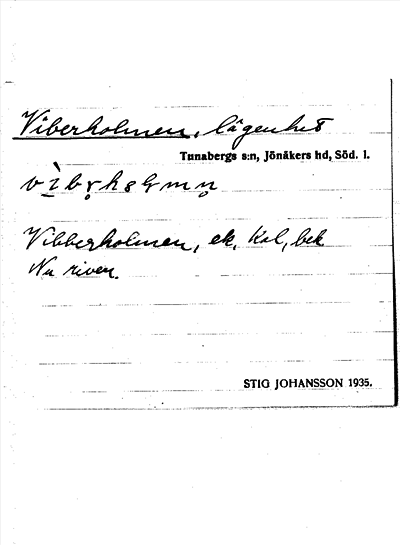 Viberholmen, lägenhet
Tunabergs s:n, Jönåkers hd, Söd. l.
Vibberholmen, ek. Kol, bek
Nu riven.
STIG JOHANSSON 1935.